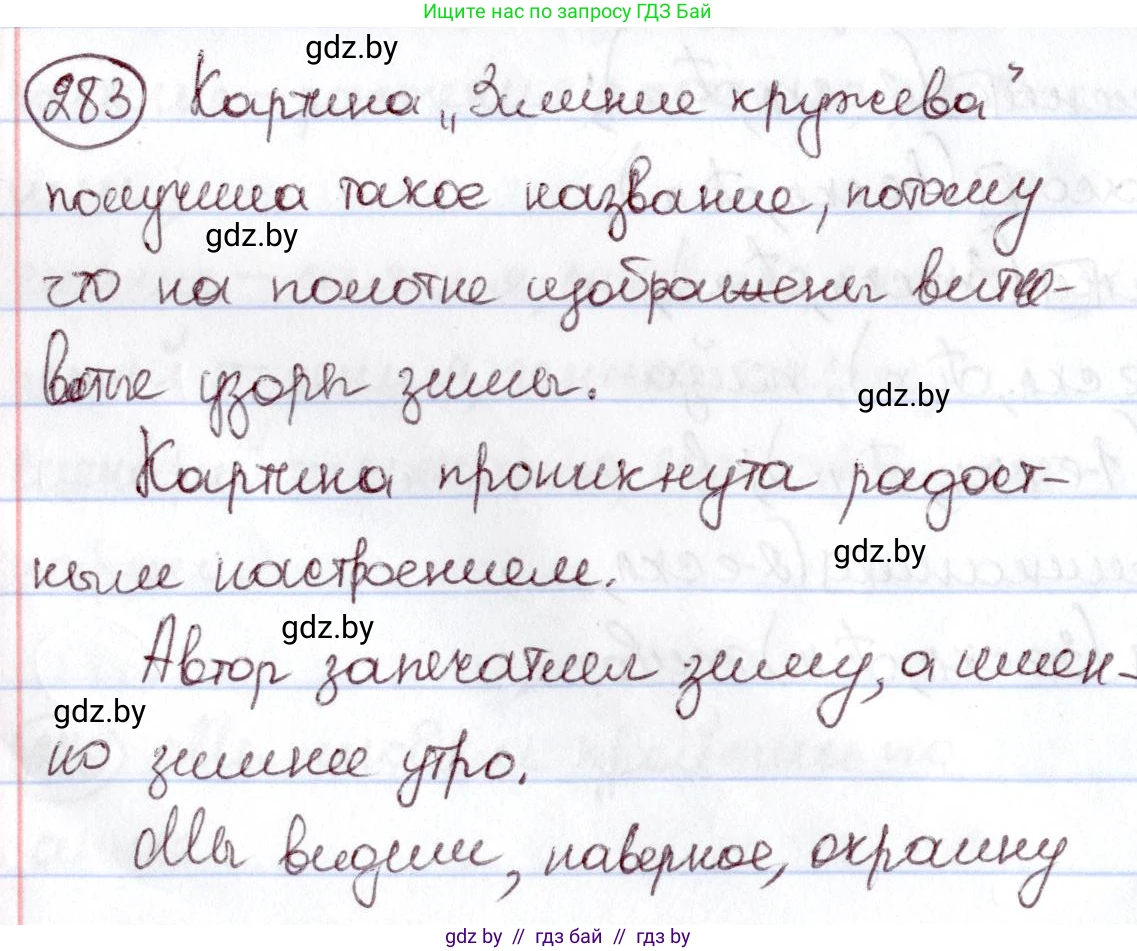 Ищите нас по запросу ГДЗ Бай
gdz.by
283 Картина „Зимние кружева"
получила такое название, потому
gdz.by
что на полотне изображены витие-
ватые узоры зимы.
gdz.by
Картина проникнута радост-
gdz.by
ным настроением.
gdz.by
Автор запечатлел зиму, а имен-
gdz.by
но зимнее утро.
Мы видим, наверное, окраину
gdz.by // гдз бай // gdz by